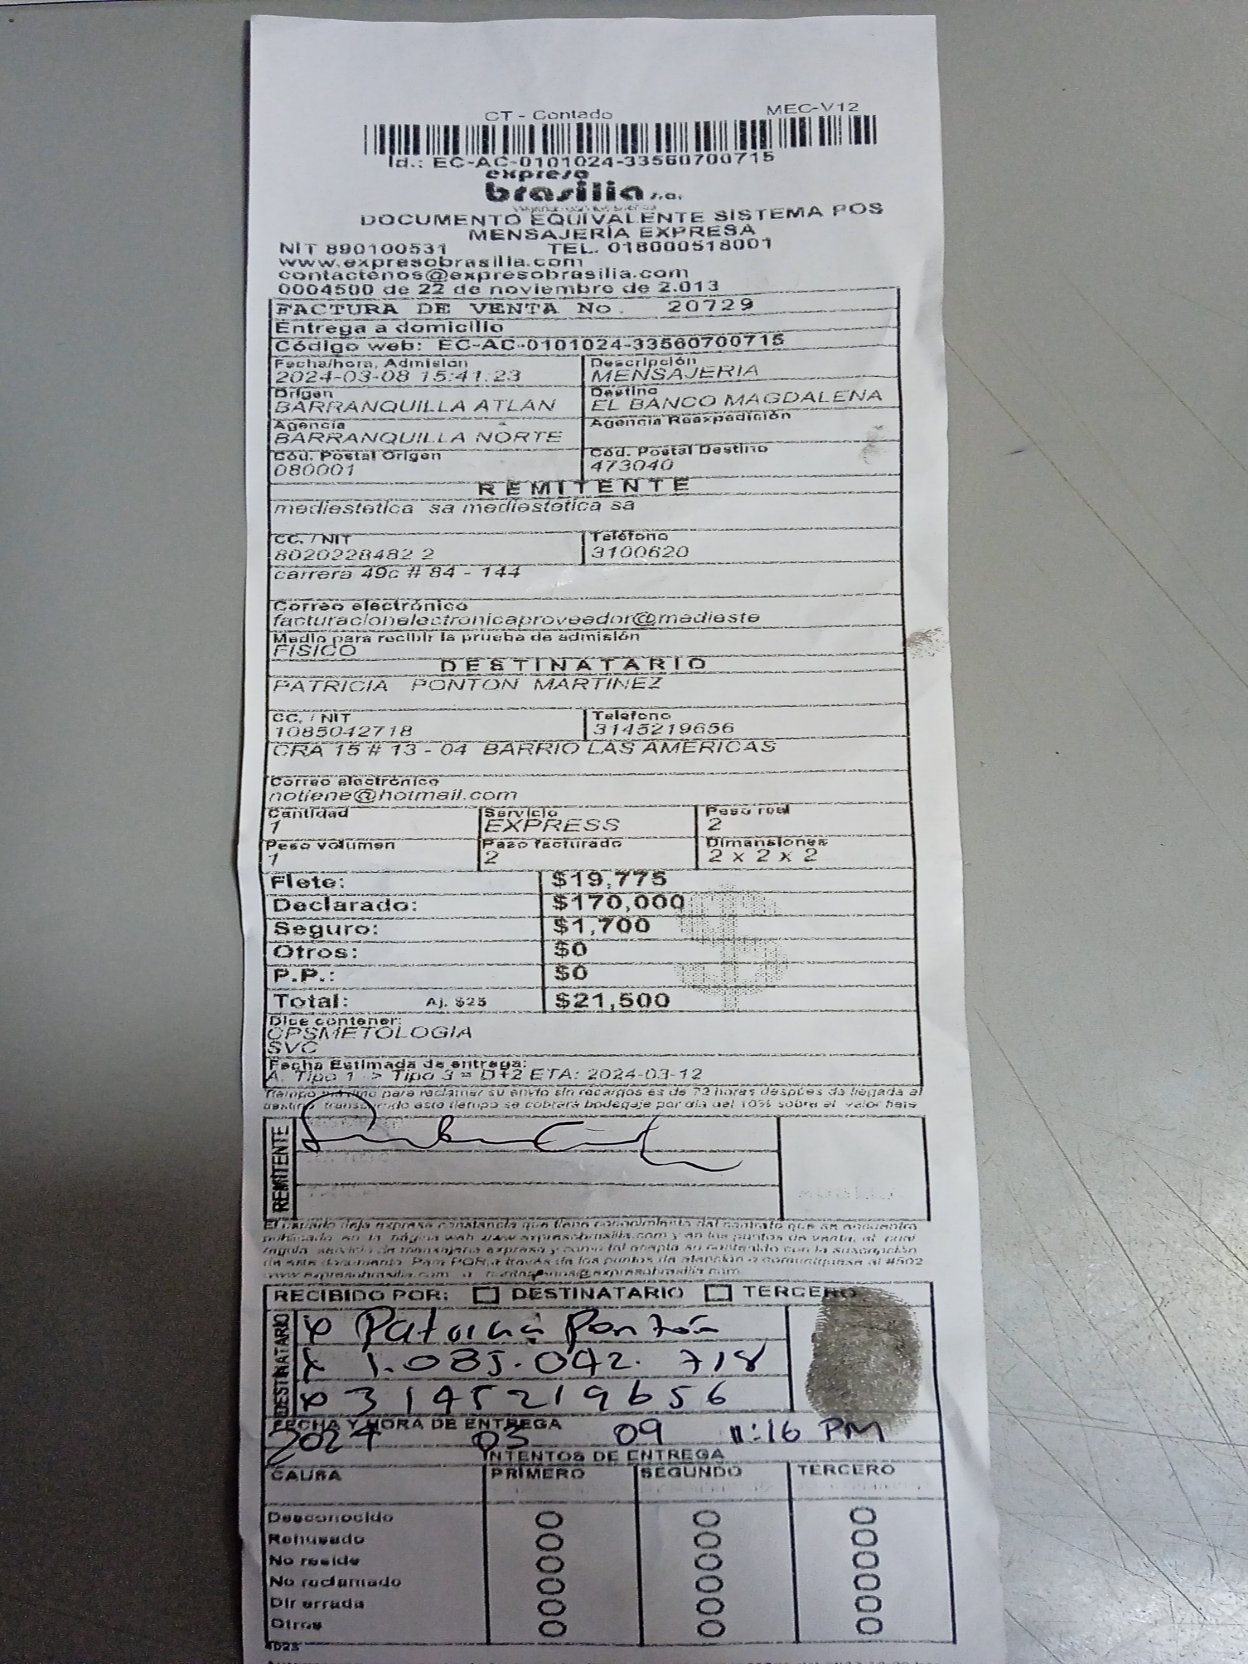 CT - Contado MEC-V12
Id.: EC-AC-0101024-33560700715
expreso
brasilia s.a.
DOCUMENTO EQUIVALENTE SISTEMA POS
MENSAJERÍA EXPRESA
NIT 890100531 TEL. 018000518001
www.expresobrasilia.com
contactenos@expresobrasilia.com
0004500 de 22 de noviembre de 2.013
FACTURA DE VENTA No. 20729
Entrega a domicilio
Código web: EC-AC-0101024-33560700715
Fecha/hora, Admisión Descripción
2024-03-08 15:41:23 MENSAJERIA
Origen Destino
BARRANQUILLA ATLAN EL BANCO MAGDALENA
Agencia Agencia Reexpedición
BARRANQUILLA NORTE
Cód. Postal Origen Cód. Postal Destino
080001 473040
REMITENTE
mediestetica sa mediestetica sa
CC. / NIT Teléfono
8020228482 2 3100620
carrera 49c # 84 - 144
Correo electrónico
facturacionelectronicaproveedor@medieste
Medio para recibir la prueba de admisión
FISICO
DESTINATARIO
PATRICIA PONTON MARTINEZ
CC. / NIT Teléfono
1085042718 3145219656
CRA 15 # 13 - 04 BARRIO LAS AMERICAS
Correo electrónico
notiene@hotmail.com
Cantidad Servicio Peso real
1 EXPRESS 2
Peso volumen Peso facturado Dimensiones
1 2 2 x 2 x 2
Flete: $19,775
Declarado: $170,000
Seguro: $1,700
Otros: $0
P.P.: $0
Total: Aj. $25 $21,500
Dice contener:
CPSMETOLOGIA
SVC
Fecha Estimada de entrega:
A. Tipo 1 -> Tipo 3 = D+2 ETA: 2024-03-12
Tiempo máximo para reclamar su envío sin recargos es de 72 horas después de llegada al
destino, transcurrido este tiempo se cobrará bodegaje por día del 10% sobre el valor flete
REMITENTE
El usuario deja expresa constancia que tiene conocimiento del contrato que se encuentra
publicado en la página web www.expresobrasilia.com y en los puntos de venta, el cual
regula servicio de mensajería expresa y como tal acepta su contenido con la suscripción
de este documento. Para PQR a través de los puntos de atención o comuníquese al #502
www.expresobrasilia.com o contactenos@expresobrasilia.com
RECIBIDO POR: DESTINATARIO TERCERO
DESTINATARIO
x Patricia Pontón
x 1.085.042.718
x 3145219656
FECHA Y HORA DE ENTREGA
2024 03 09 1:16 PM
INTENTOS DE ENTREGA
CAUSA PRIMERO SEGUNDO TERCERO
Desconocido
Rehusado
No reside
No reclamado
Dir errada
Otros